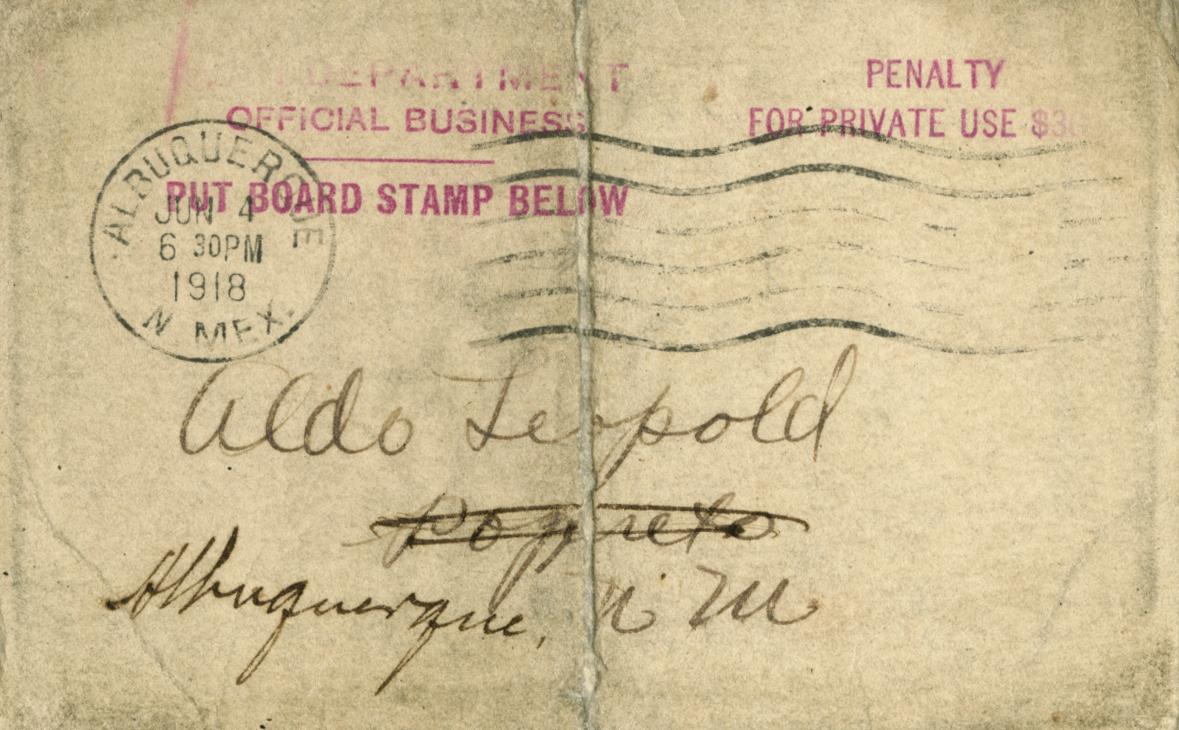 DEPARTMENT
OFFICIAL BUSINESS
PENALTY
FOR PRIVATE USE $30
PUT BOARD STAMP BELOW
ALBUQUERQUE
JUN 4
6 30PM
1918
N MEX.
Aldo Leopold
Albuquerque, N M